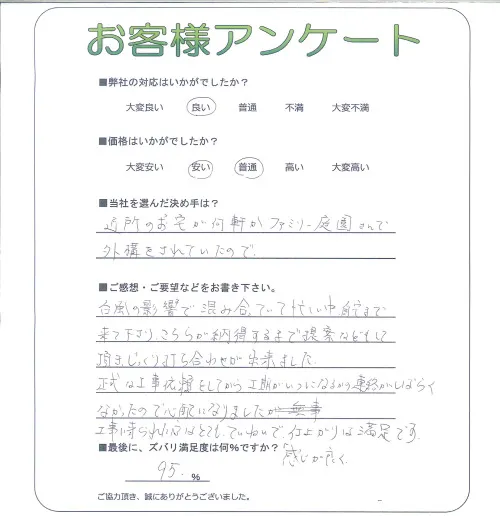 お客様アンケート
■弊社の対応はいかがでしたか？
大変良い 良い 普通 不満 大変不満
■価格はいかがでしたか？
大変安い 安い 普通 高い 大変高い
■当社を選んだ決め手は？
近所のお宅が何軒かファミリー庭園さんで
外構をされていたので。
■ご感想・ご要望などをお書き下さい。
台風の影響で混み合っていて忙しい中、自宅まで
来て下さり、こちらが納得するまで提案などをして
頂き、じっくり打ち合わせが出来ました。
正式な工事依頼をしてから工期がいつになるかの連絡がしばらく
なかったので心配になりましたが無事
工事に来られた方はとてもていねいで、仕上がりは満足です。
感じが良く
■最後に、ズバリ満足度は何％ですか？
95. %
ご協力頂き、誠にありがとうございました。